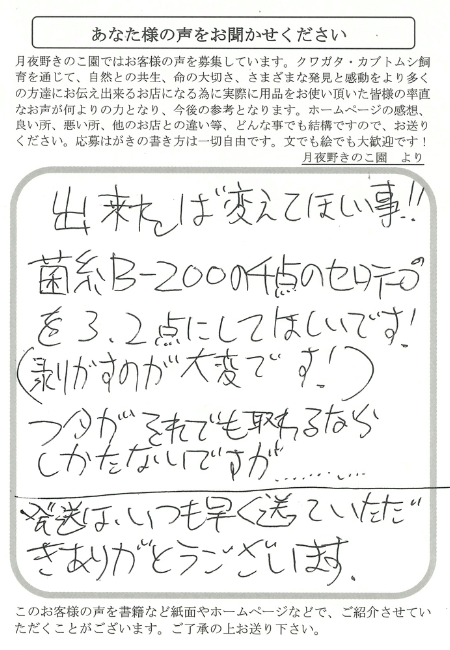 あなた様の声をお聞かせください
月夜野きのこ園ではお客様の声を募集しています。クワガタ・カブトムシ飼
育を通じて、自然との共生、命の大切さ、さまざまな発見と感動をより多く
の方達にお伝え出来るお店になる為に実際に用品をお使い頂いた皆様の率直
なお声が何よりの力となり、今後の参考となります。ホームページの感想、
良い所、悪い所、他のお店との違い等、どんな事でも結構ですので、お送り
ください。応募はがきの書き方は一切自由です。文でも絵でも大歓迎です！
月夜野きのこ園　より
出来れば変えてほしい事!!
菌糸B-200の4点のセロテープ
を3、2点にしてほしいです!
(剥がすのが大変です!)
フタがそれでも取れるなら
しかたないですが..........
発送は、いつも早く送っていただ
きありがとうございます。
このお客様の声を書籍など紙面やホームページなどで、ご紹介させてい
ただくことがございます。ご了承の上お送り下さい。